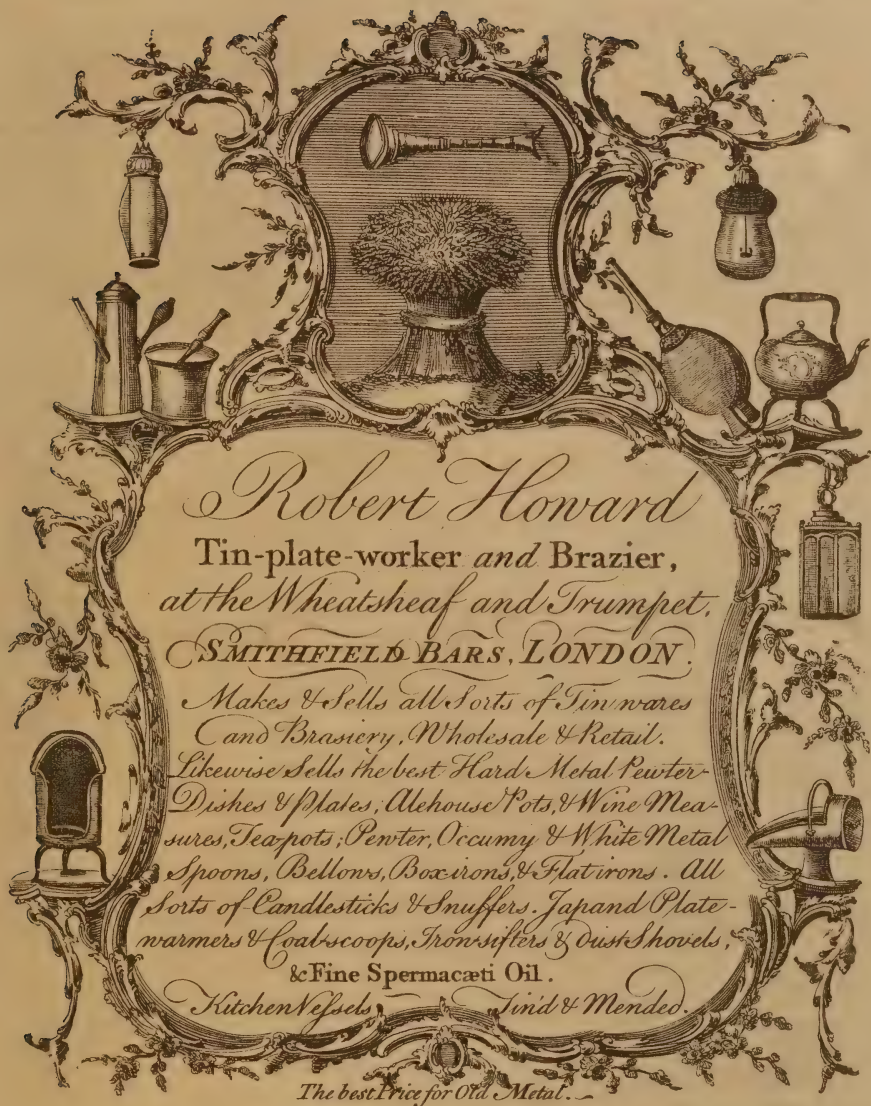 Robert Howard
Tin-plate-worker and Brazier,
at the Wheatsheaf and Trumpet,
SMITHFIELD BARS, LONDON.
Makes & Sells all Sorts of Tin wares
and Brasiery, Wholesale & Retail.
Likewise Sells the best Hard Metal Pewter
Dishes & Plates; Alehouse Pots, & Wine Mea-
sures, Tea-pots; Pewter, Occumy & White Metal
Spoons, Bellows, Box-irons, & Flat irons. All
Sorts of Candlesticks & Snuffers. Japand Plate-
warmers & Coal-scoops, Iron-sifters & dust Shovels,
& Fine Spermacæti Oil.
Kitchen Vessels Tin'd & Mended.
The best Price for Old Metal.